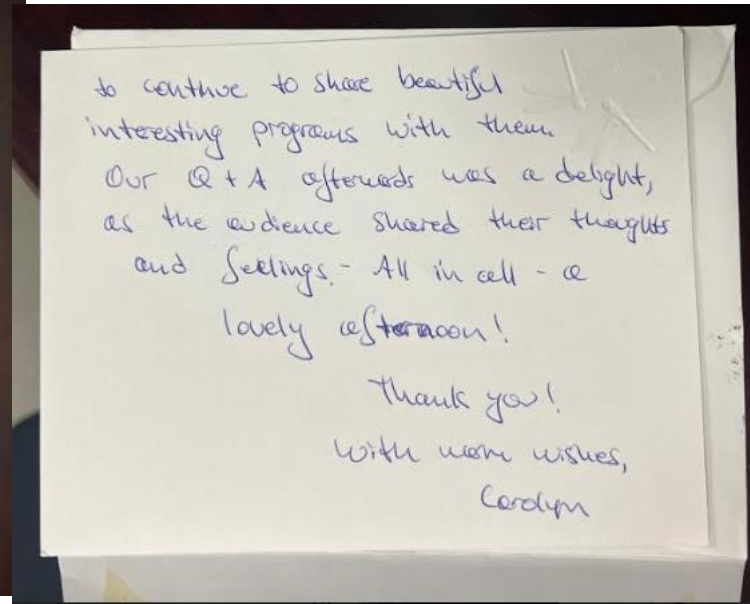 to continue to share beautiful
interesting programs with them.
Our Q + A afterwards was a delight,
as the audience shared their thoughts
and feelings. - All in all - a
lovely afternoon!
Thank you!
With warm wishes,
Carolyn